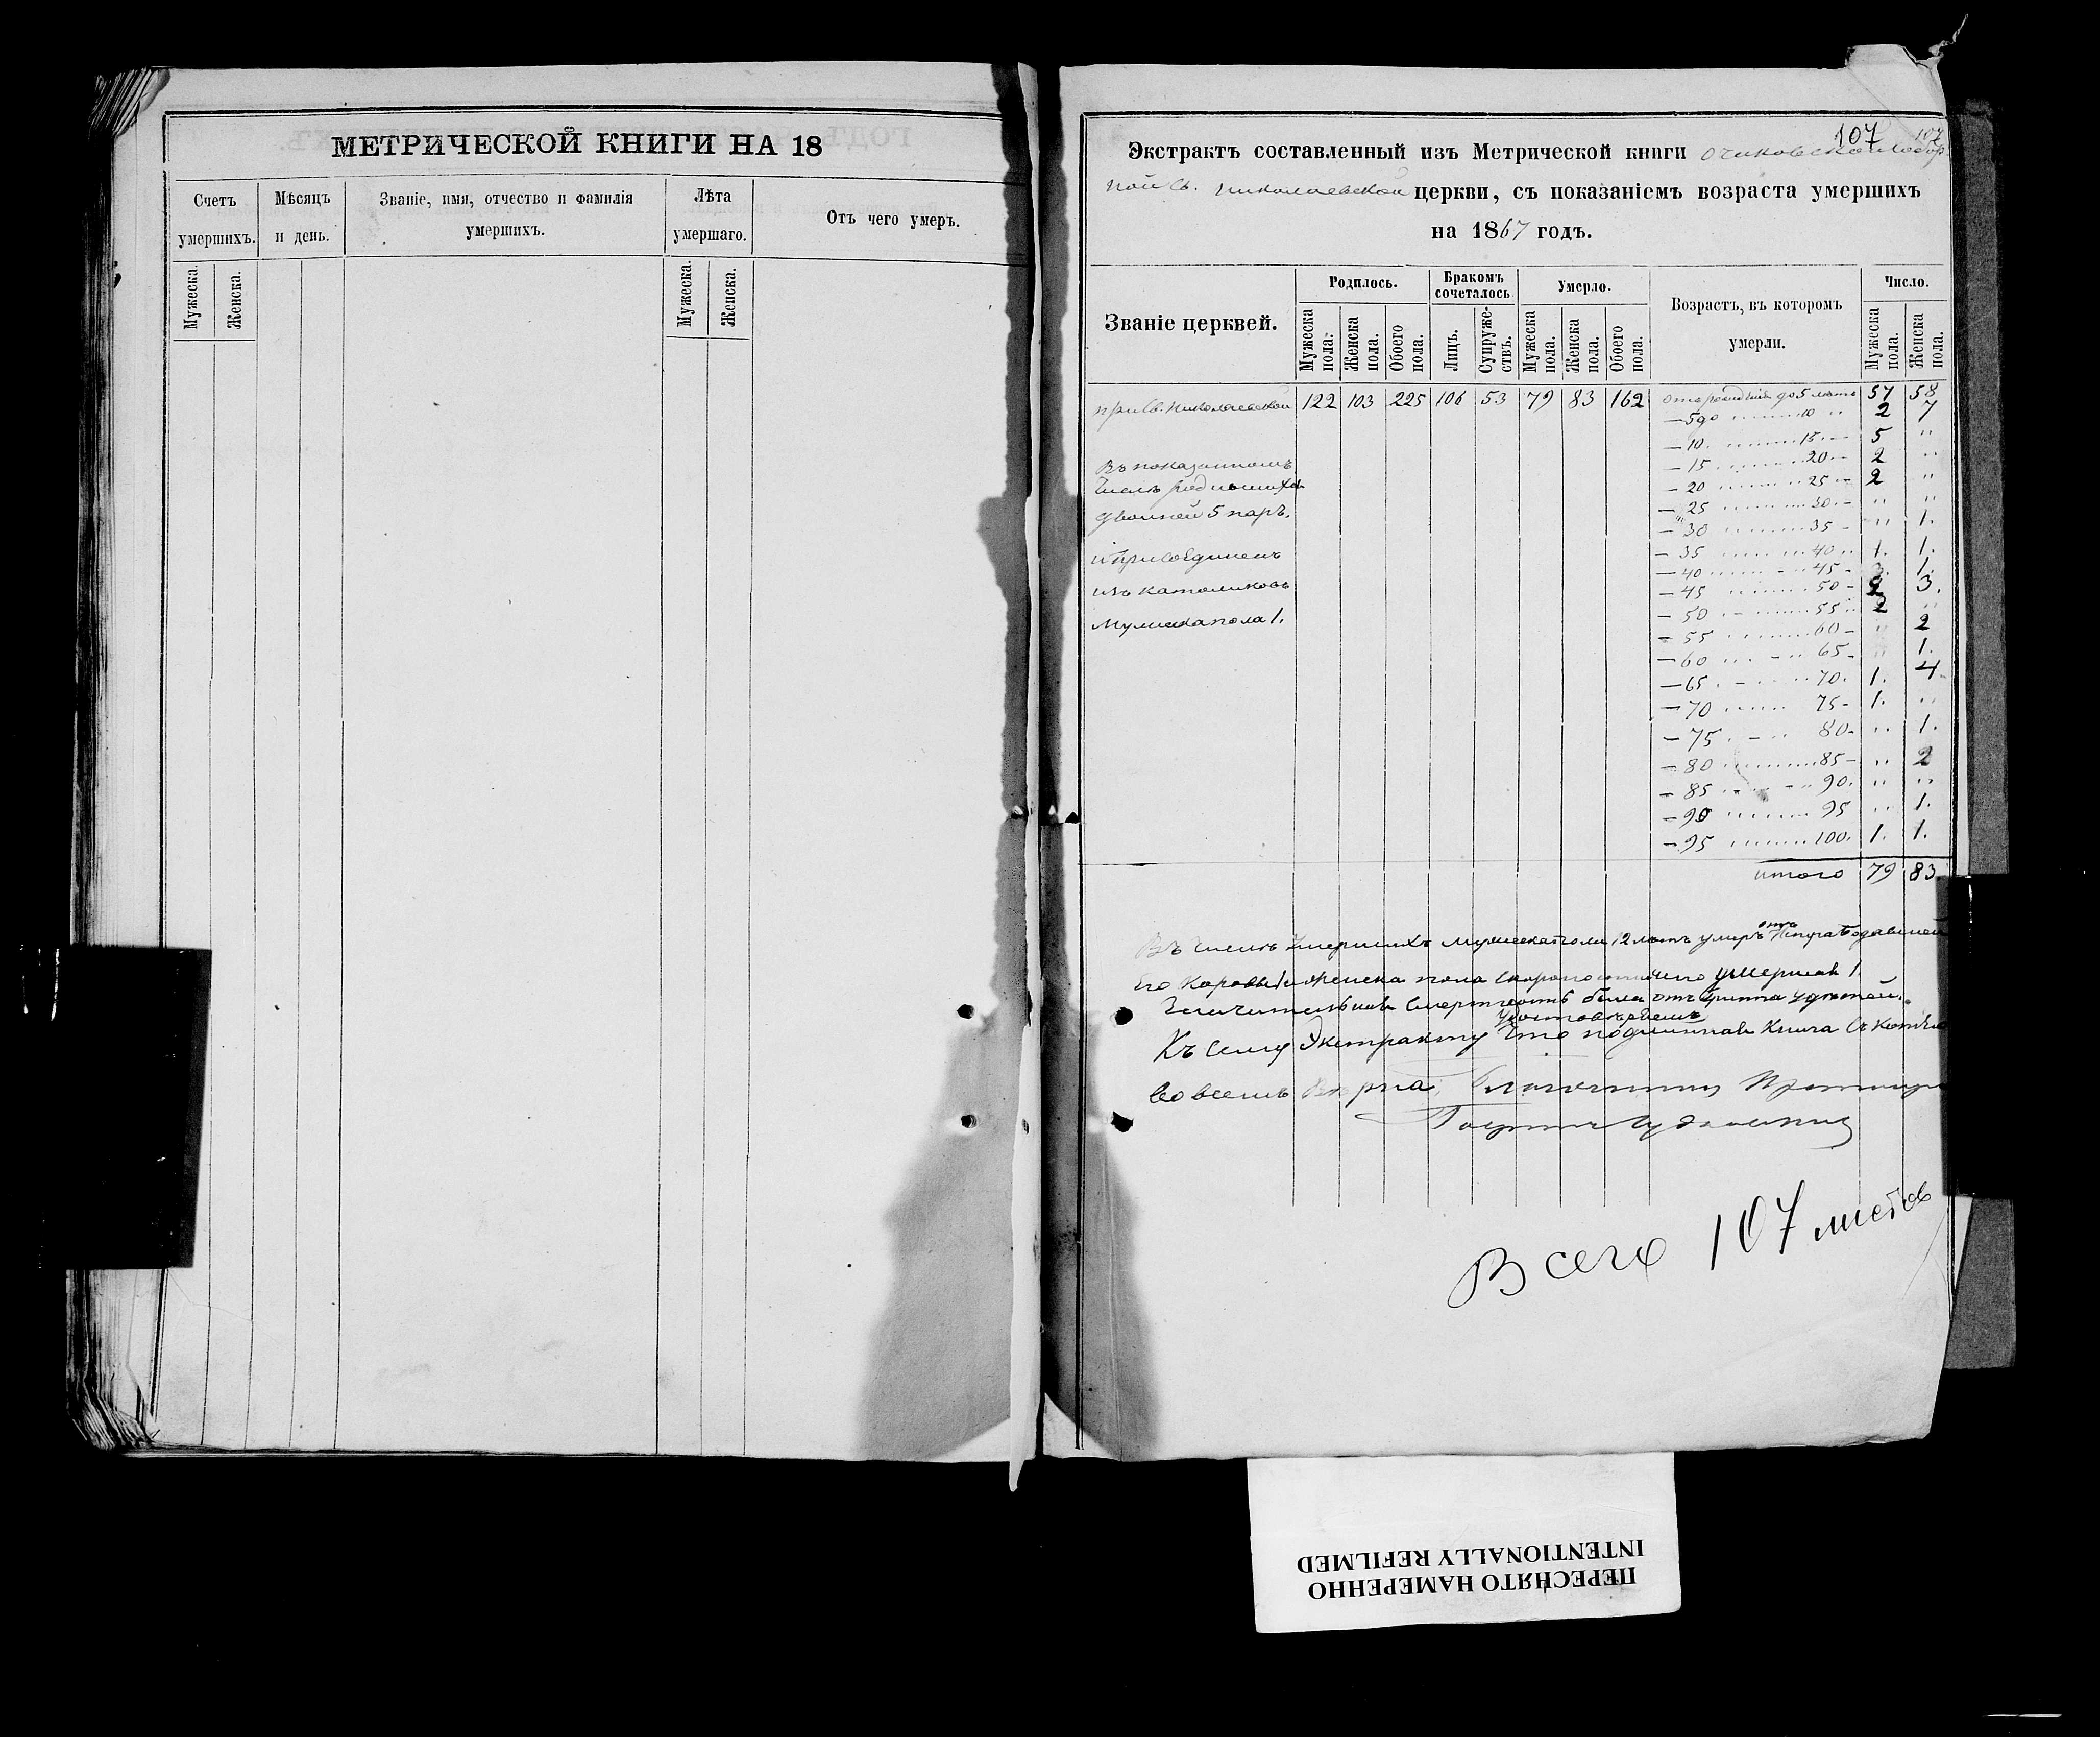 МЕТРИЧЕСКОЙ КНИГИ НА 18
Счетъ умершихъ.
Мѣсяцъ и день.
Званіе, имя, отчество и фамилія умершихъ.
Лѣта умершаго.
Отъ чего умеръ.
Мужеска.
Женска.
Мужеска.
Женска.
107
107
Экстрактъ составленный изъ Метрической книги Очаковской Собор
ной Св. Николаевской церкви, съ показаніемъ возраста умершихъ
на 1867 годъ.
Званіе церквей.
Родилось.
Бракомъ сочеталось
Умерло.
Возрастъ, въ которомъ умерли.
Число.
Мужеска пола.
Женска пола.
Обоего пола.
Лицъ.
Супруже-ствъ.
Мужеска пола.
Женска пола.
Обоего пола.
Мужеска пола.
Женска пола.
при Св. Николаевской 122 103 225 106 53 79 83 162 отъ рожденія до 5 лѣтъ 57 58
— 5 до 10 " 2 7
— 10 15 — 5 "
— 15 20 — 2 "
— 20 25 — 2 "
— 25 30 — " "
— 30 35 — " 1.
— 35 40 " 1. 1.
— 40 45 — 3. 1.
— 45 50 — 2 3.
— 50 55 2 "
— 55 60 — " 2
— 60 65 — " 1.
— 65 70. 1. 4
— 70 75 — 1. "
— 75 80 — " 1.
— 80 85 — " 2
— 85 90. " "
— 90 95 " 1.
— 95 100. 1. 1.
итого 79 83.
Въ показанномъ
числѣ родившихся
двойней 5 паръ.
и присоединенъ
изъ католиковъ
мужеска пола 1.
Въ числѣ умершихъ мужеска пола 12 лѣтъ умеръ отъ
его коровы и женска пола скоропостижно умершая 1.
Значительная смертность была отъ Круппа у дѣтей.
удостовѣряемъ
Къ сему Экстракту что подлинная книга съ
во всемъ вѣрна, Благочинный
Всего 107 листов
ПЕРЕСНЯТО НАМЕРЕННО
INTENTIONALLY REFILMED